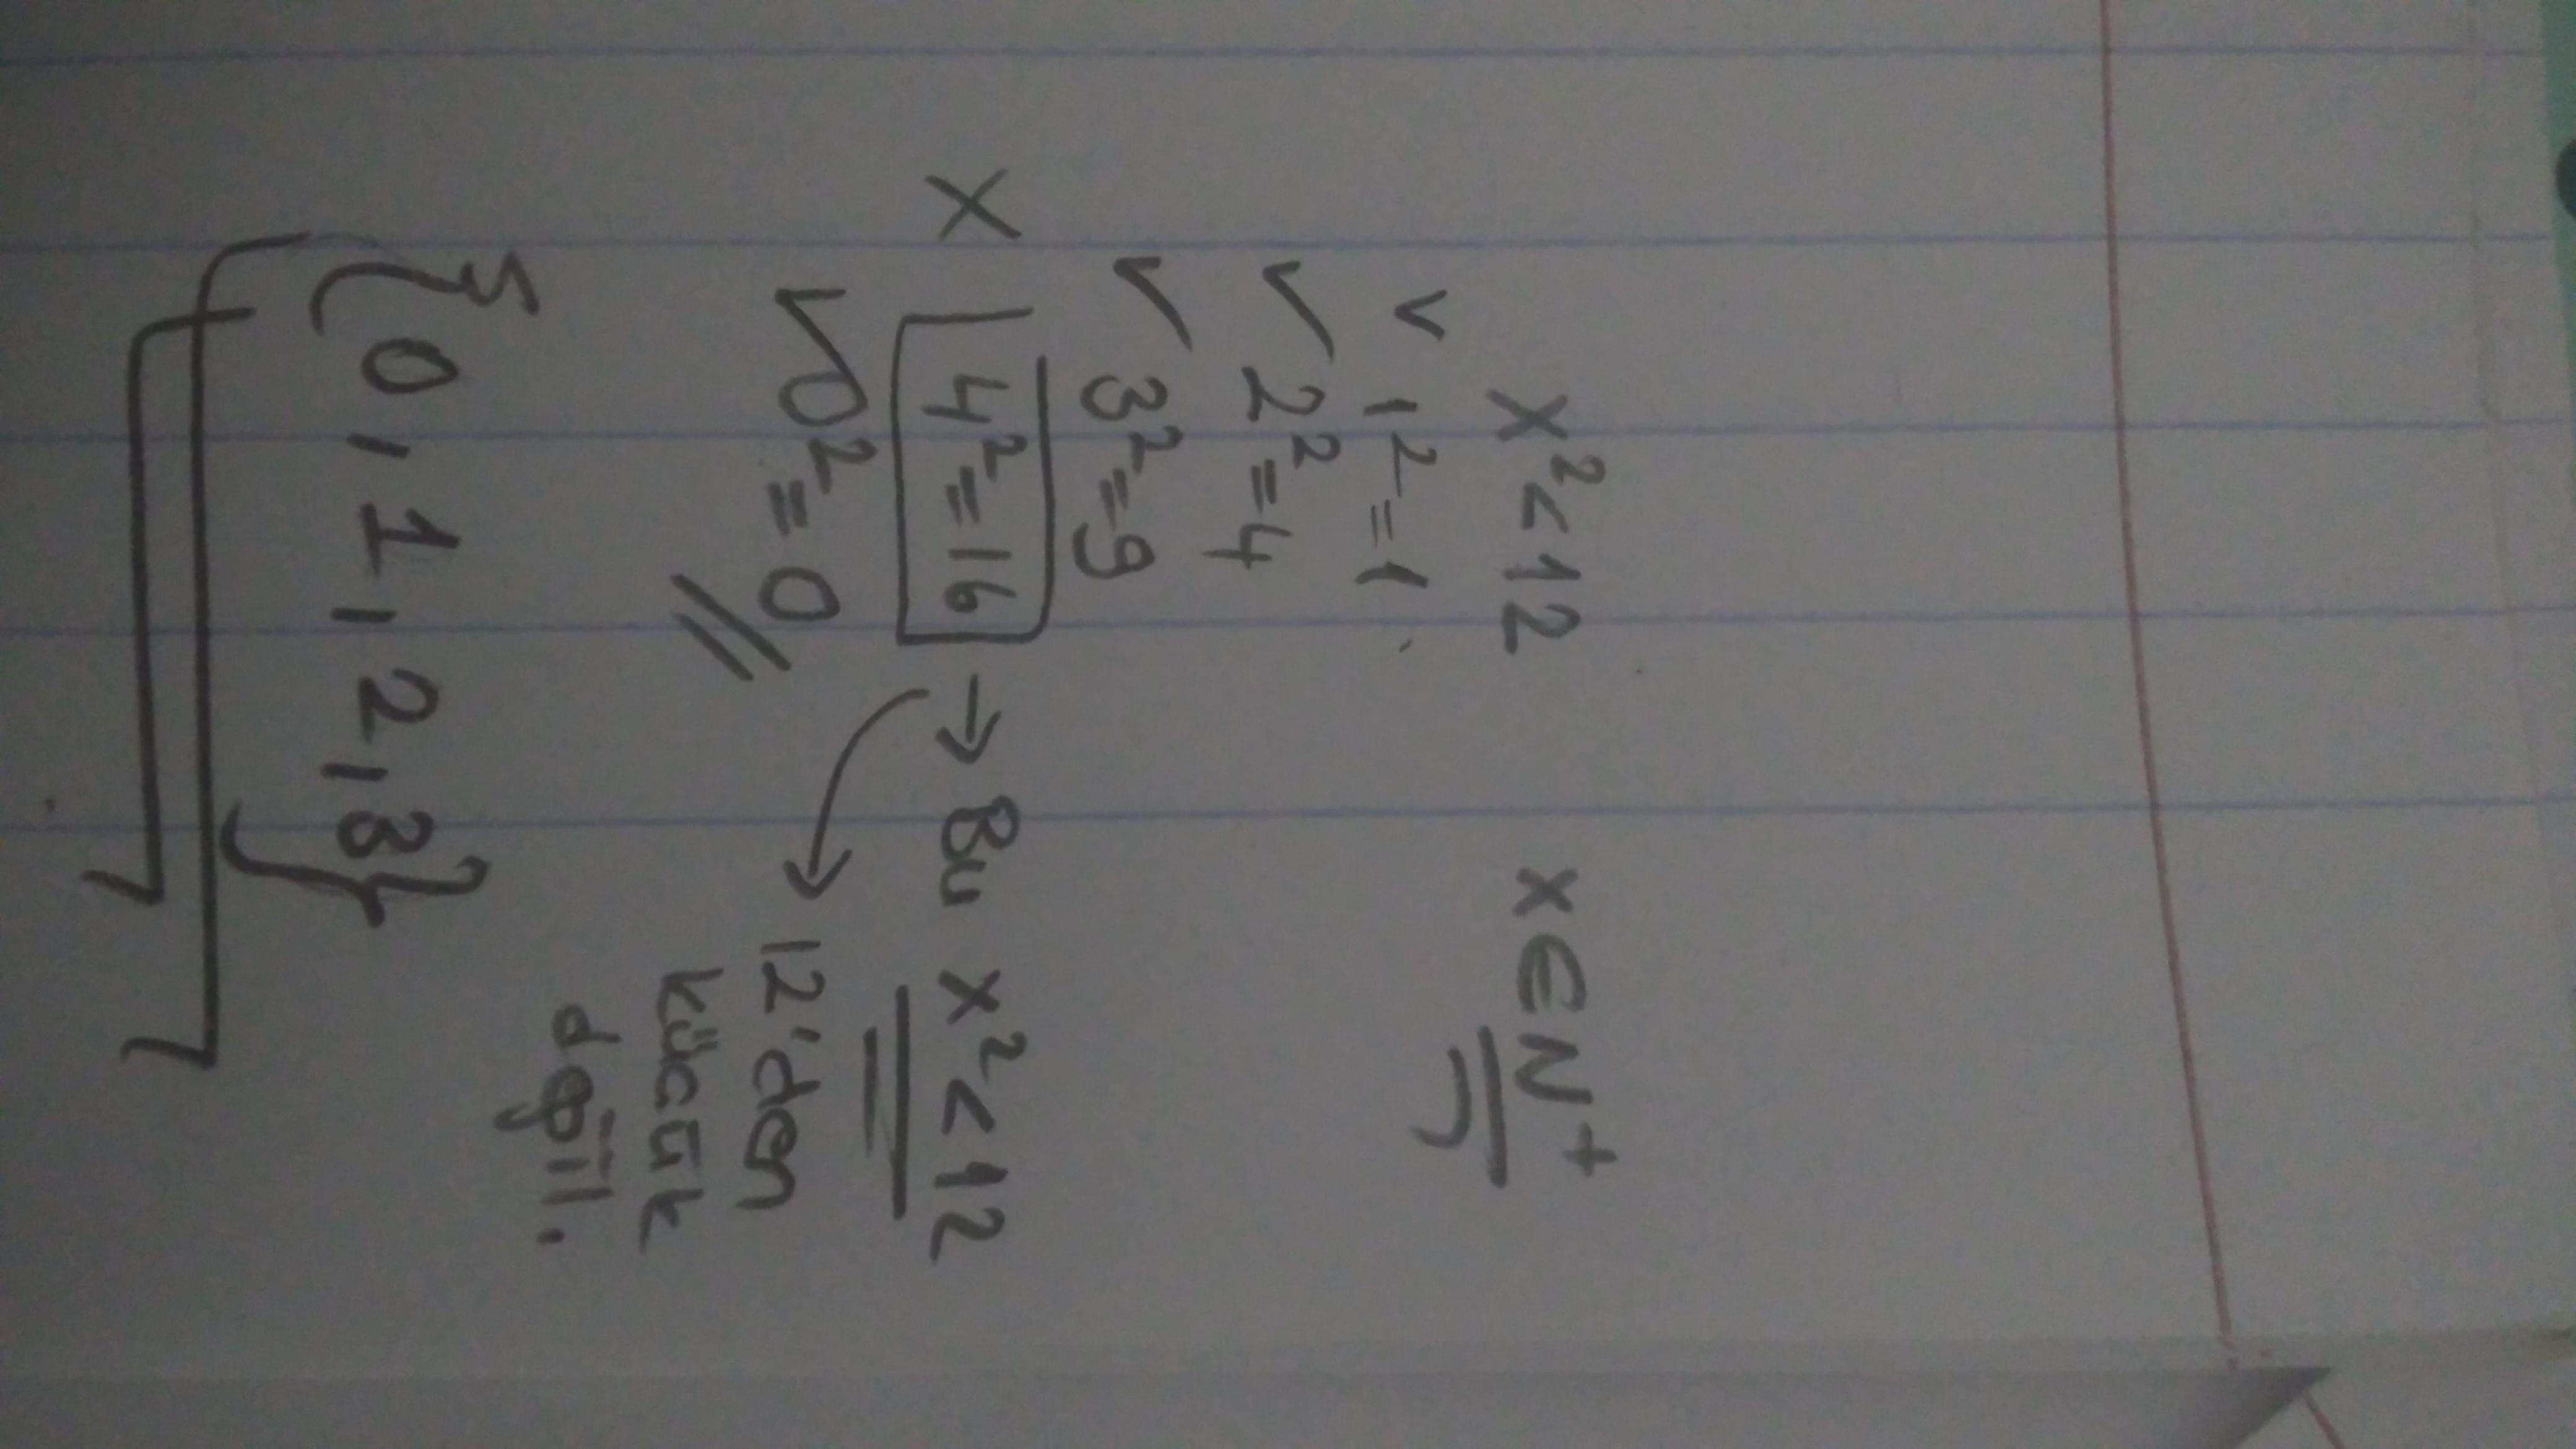 x²<12 x∈N⁺
✓ 1²=1
✓ 2²=4
✓ 3²=9
X 4²=16 → Bu x²<12
✓ 0²=0 → 12'den
küçük
değil.
{0,1,2,3}